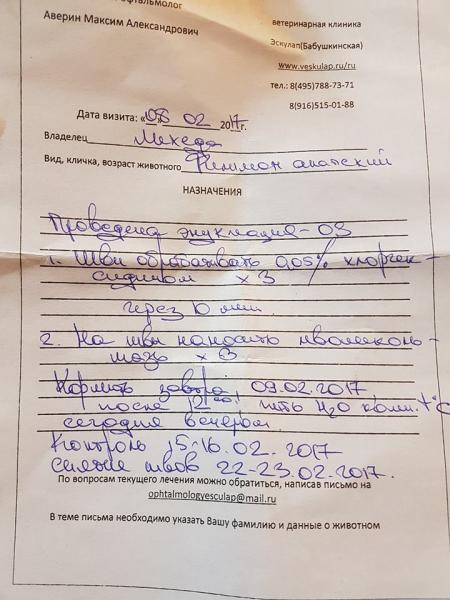 офтальмолог
Аверин Максим Александрович
ветеринарная клиника
Эскулап(Бабушкинская)
www.veskulap.ru/ru
тел.: 8(495)788-73-71
8(916)515-01-88
Дата визита: «08» 02 2017г.
Владелец Мехеда
Вид, кличка, возраст животного Филимон
НАЗНАЧЕНИЯ
Проведена энуклеация - OS
1. Швы обрабатывать 0,05% хлоргек-
сидином х 3
через 10 мин.
2. На швы наносить левомеколь-
мазь х 3
Кормить завтра, 09.02.2017
после 12 00, пить H2O комн. t°C
сегодня вечером.
Контроль 15-16.02.2017
снятие швов 22-23.02.2017.
По вопросам текущего лечения можно обратиться, написав письмо на
ophtalmologyesculap@mail.ru
В теме письма необходимо указать Вашу фамилию и данные о животном